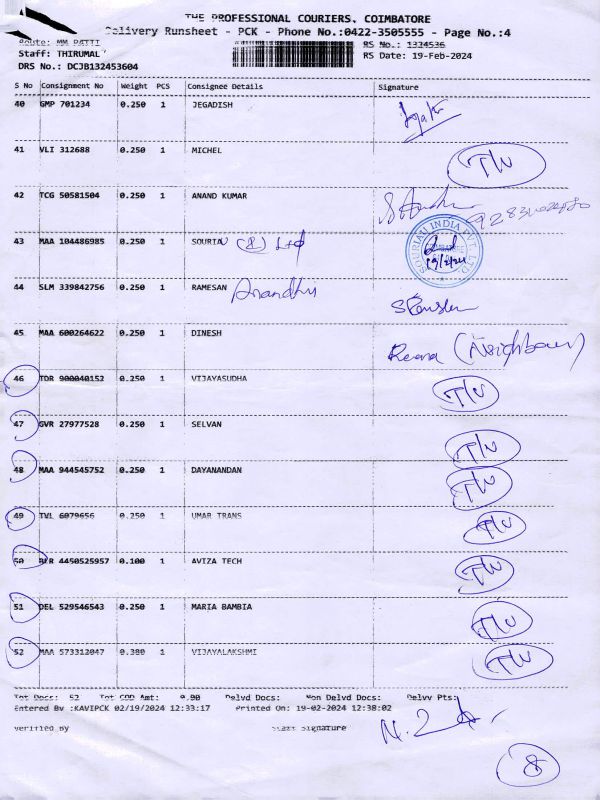 THE PROFESSIONAL COURIERS, COIMBATORE
Delivery Runsheet - PCK - Phone No.:0422-3505555 - Page No.:4
Route: MM PATTI
RS No.: 1324536
Staff: THIRUMAL
RS Date: 19-Feb-2024
DRS No.: DCJB132453604
S No Consignment No Weight PCS Consignee Details Signature
40 GMP 701234 0.250 1 JEGADISH
41 VLI 312688 0.250 1 MICHEL T/N
42 TCG 50581504 0.250 1 ANAND KUMAR
43 MAA 104486985 0.250 1 SOURIAU (I) Ltd
SOURIAU INDIA PVT. LTD
19/2/24
44 SLM 339842756 0.250 1 RAMESAN
45 MAA 600264622 0.250 1 DINESH Reena (Neighbour)
46 TDR 900040152 0.250 1 VIJAYASUDHA T/N
47 GVR 27977528 0.250 1 SELVAN T/N
48 MAA 944545752 0.250 1 DAYANANDAN T/N
49 TVL 6079656 0.250 1 UMAR TRANS T/N
50 BLR 4450525957 0.100 1 AVIZA TECH T/N
51 DEL 529546543 0.250 1 MARIA BAMBIA T/N
52 MAA 573312047 0.380 1 VIJAYALAKSHMI T/N
Tot Docs: 52 Tot COD Amt: 0.00 Delvd Docs: Non Delvd Docs: Delvy Pts:
Entered By :KAVIPCK 02/19/2024 12:33:17 Printed On: 19-02-2024 12:38:02
Verified By Staff Signature
8